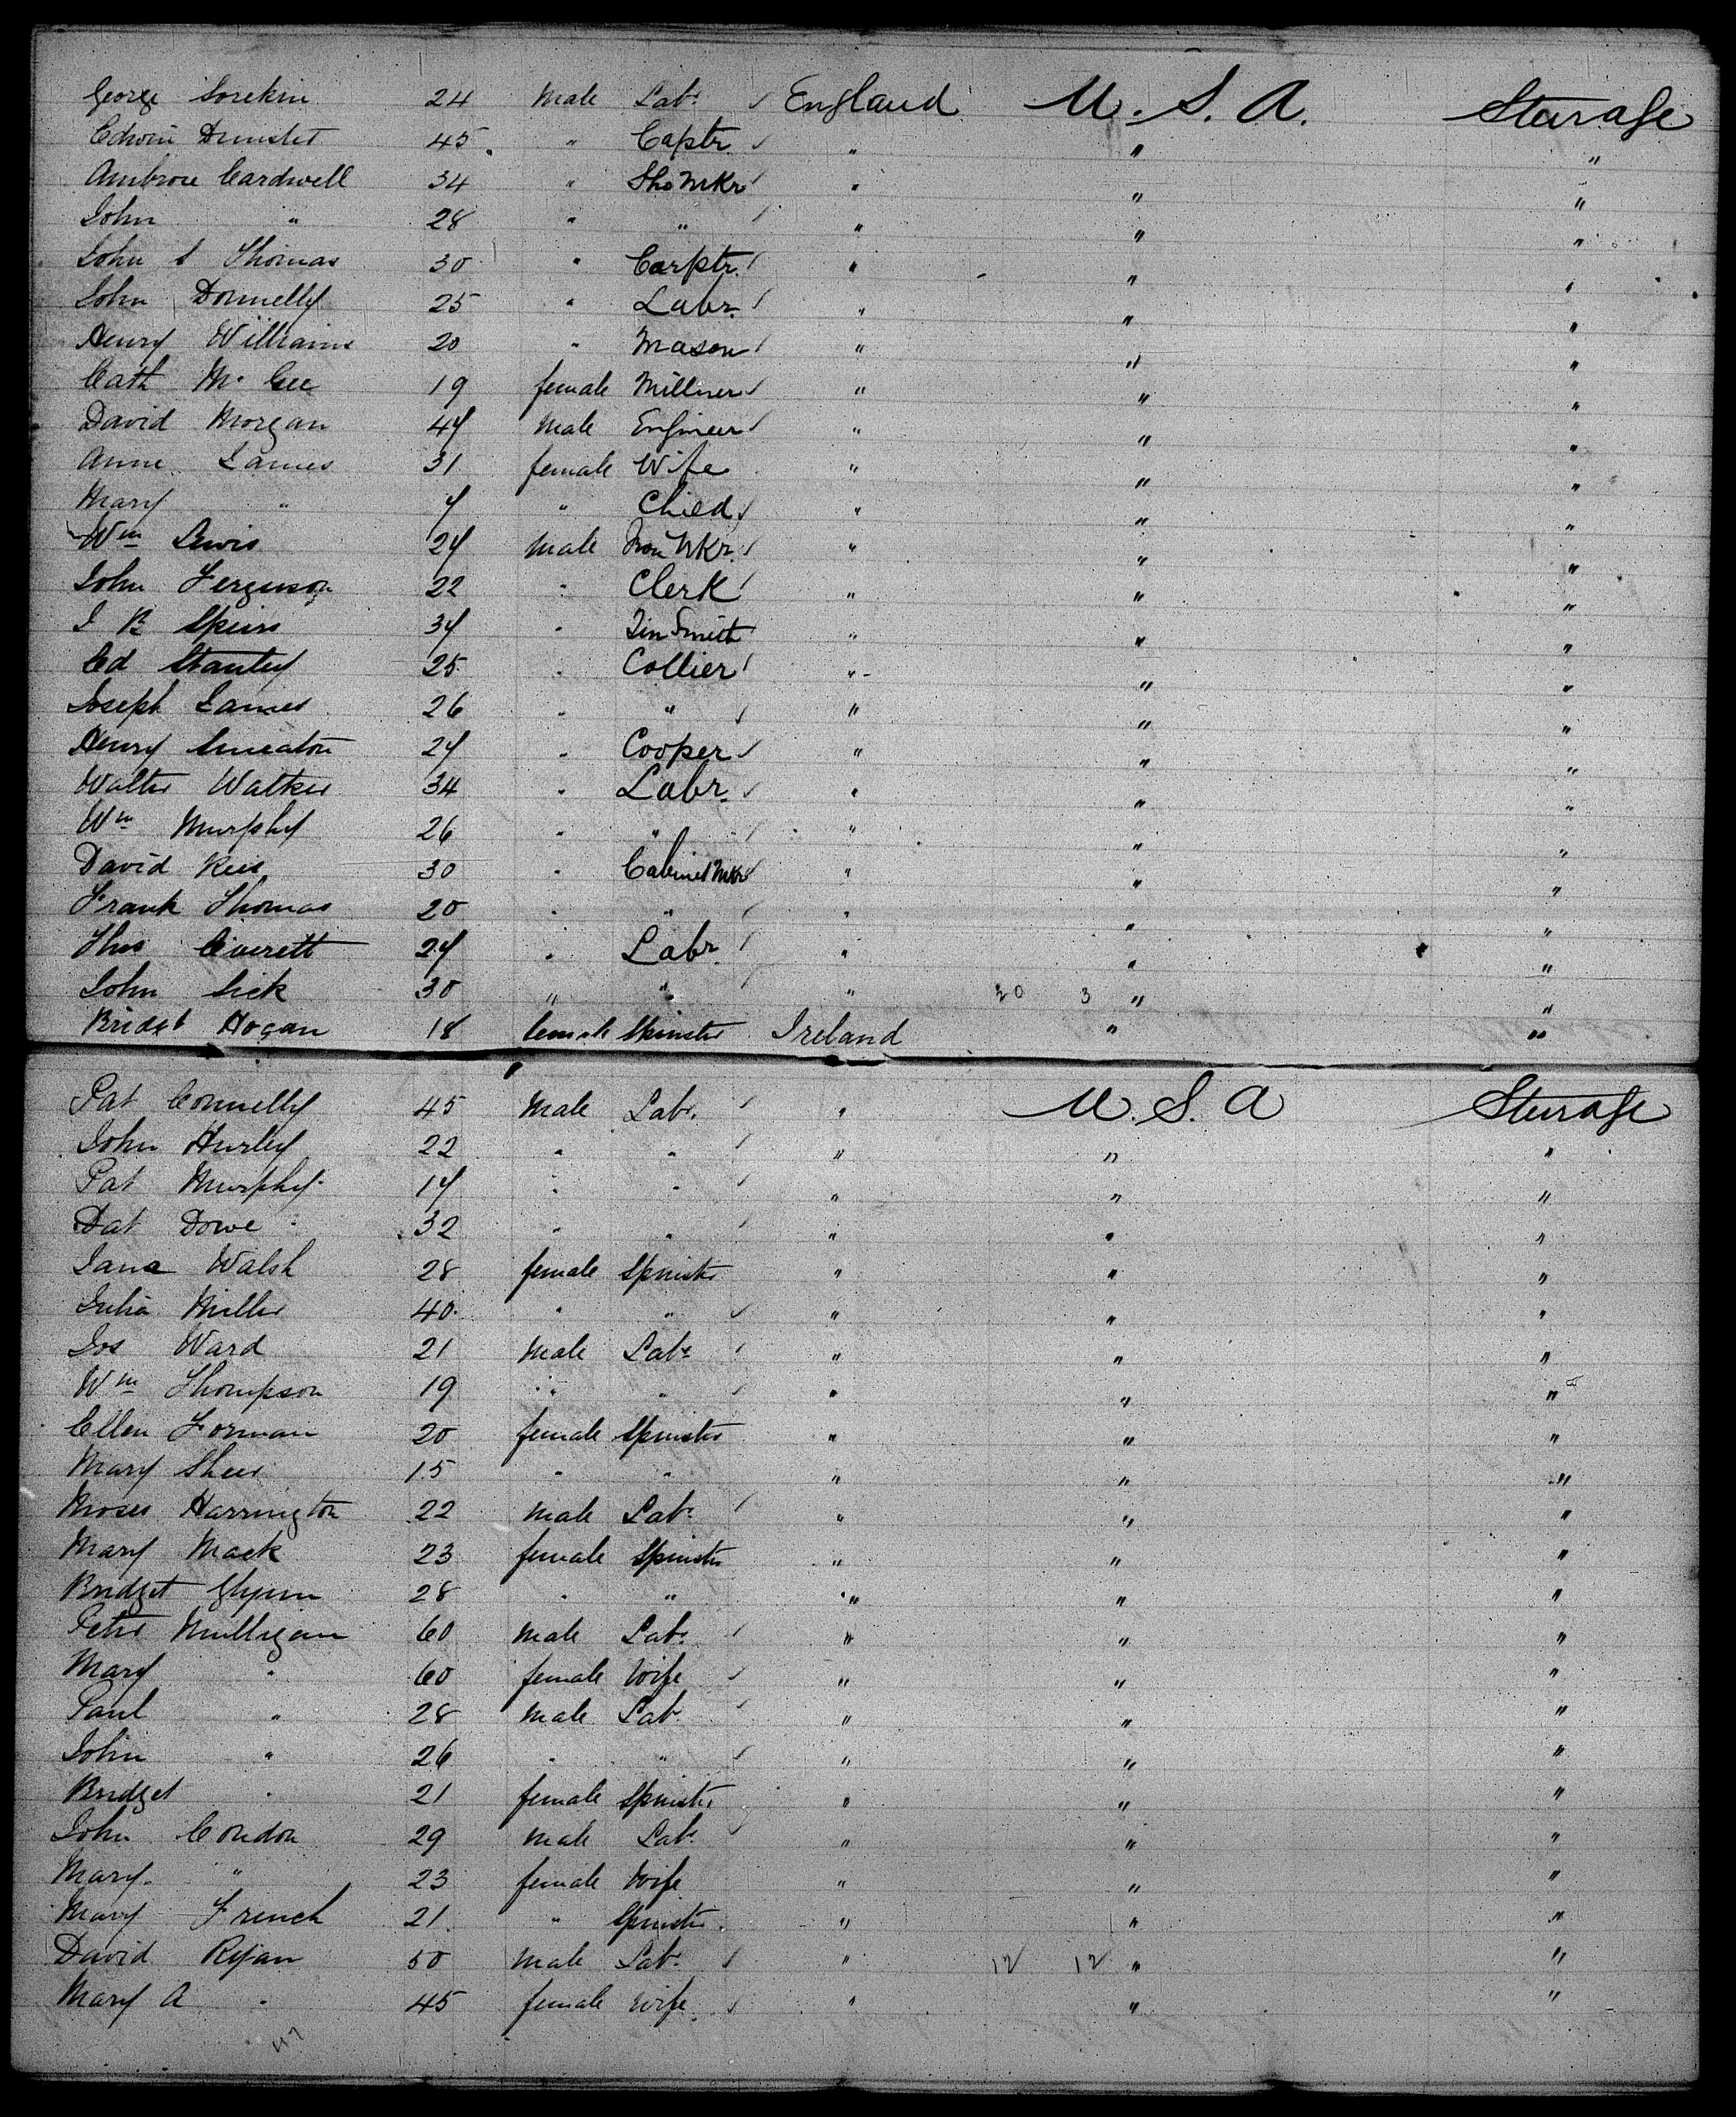 George Sorekin 24 Male Labr England U. S. A. Steerage
Edwin Dunster 45 " Captr. " " "
Ambrose Cardwell 34 " Sho Mkr " " "
John " 28 " " " " "
John S Thomas 30 " Carptr. " " "
John Donnelly 25 " Labr. " " "
Henry Williams 20 " Mason " " "
Cath Mc Gee 19 female Millner " " "
David Morgan 47 Male Engineer " " "
Anne James 31 female Wife " " "
Mary " 7 " Child " " "
Wm Lewis 27 Male Iron Wkr. " " "
John Ferguson 22 " Clerk " " "
J R Speirs 37 " Tin Smith " " "
Ed Stanley 25 " Collier " " "
Joseph James 26 " " " " "
Henry Smeaton 27 " Cooper " " "
Walter Walker 34 " Labr. " " "
Wm Murphy 26 " " " " "
David Rees 30 " Cabinet Mkr " " "
Frank Thomas 20 " " " " "
Thos Everett 27 " Labr. " " "
John Sick 30 " " " 20 3 " "
Bridget Hogan 18 female Spinster Ireland " "
Pat Connelly 45 Male Labr. " U. S. A Steerage
John Hurley 22 " " " " "
Pat Murphy 17 " " " " "
Pat Dowe 32 " " " " "
Jane Walsh 28 female Spinster " " "
Julia Miller 40 " " " " "
Jos Ward 21 Male Labr " " "
Wm Thompson 19 " " " " "
Ellen Forman 20 female Spinster " " "
Mary Shea 15 " " " " "
Moses Harrington 22 male Labr " " "
Mary Mack 23 female Spinster " " "
Bridget Glynn 28 " " " " "
Peter Mulligan 60 Male Labr. " " "
Mary " 60 female Wife " " "
Paul " 28 Male Labr " " "
John " 26 " " " " "
Bridget " 21 female Spinster " " "
John Condon 29 male Labr " " "
Mary " 23 female Wife " " "
Mary French 21 " Spinster " " "
David Ryan 50 Male Labr " 12 12 " "
Mary A " 45 female Wife " " "
47